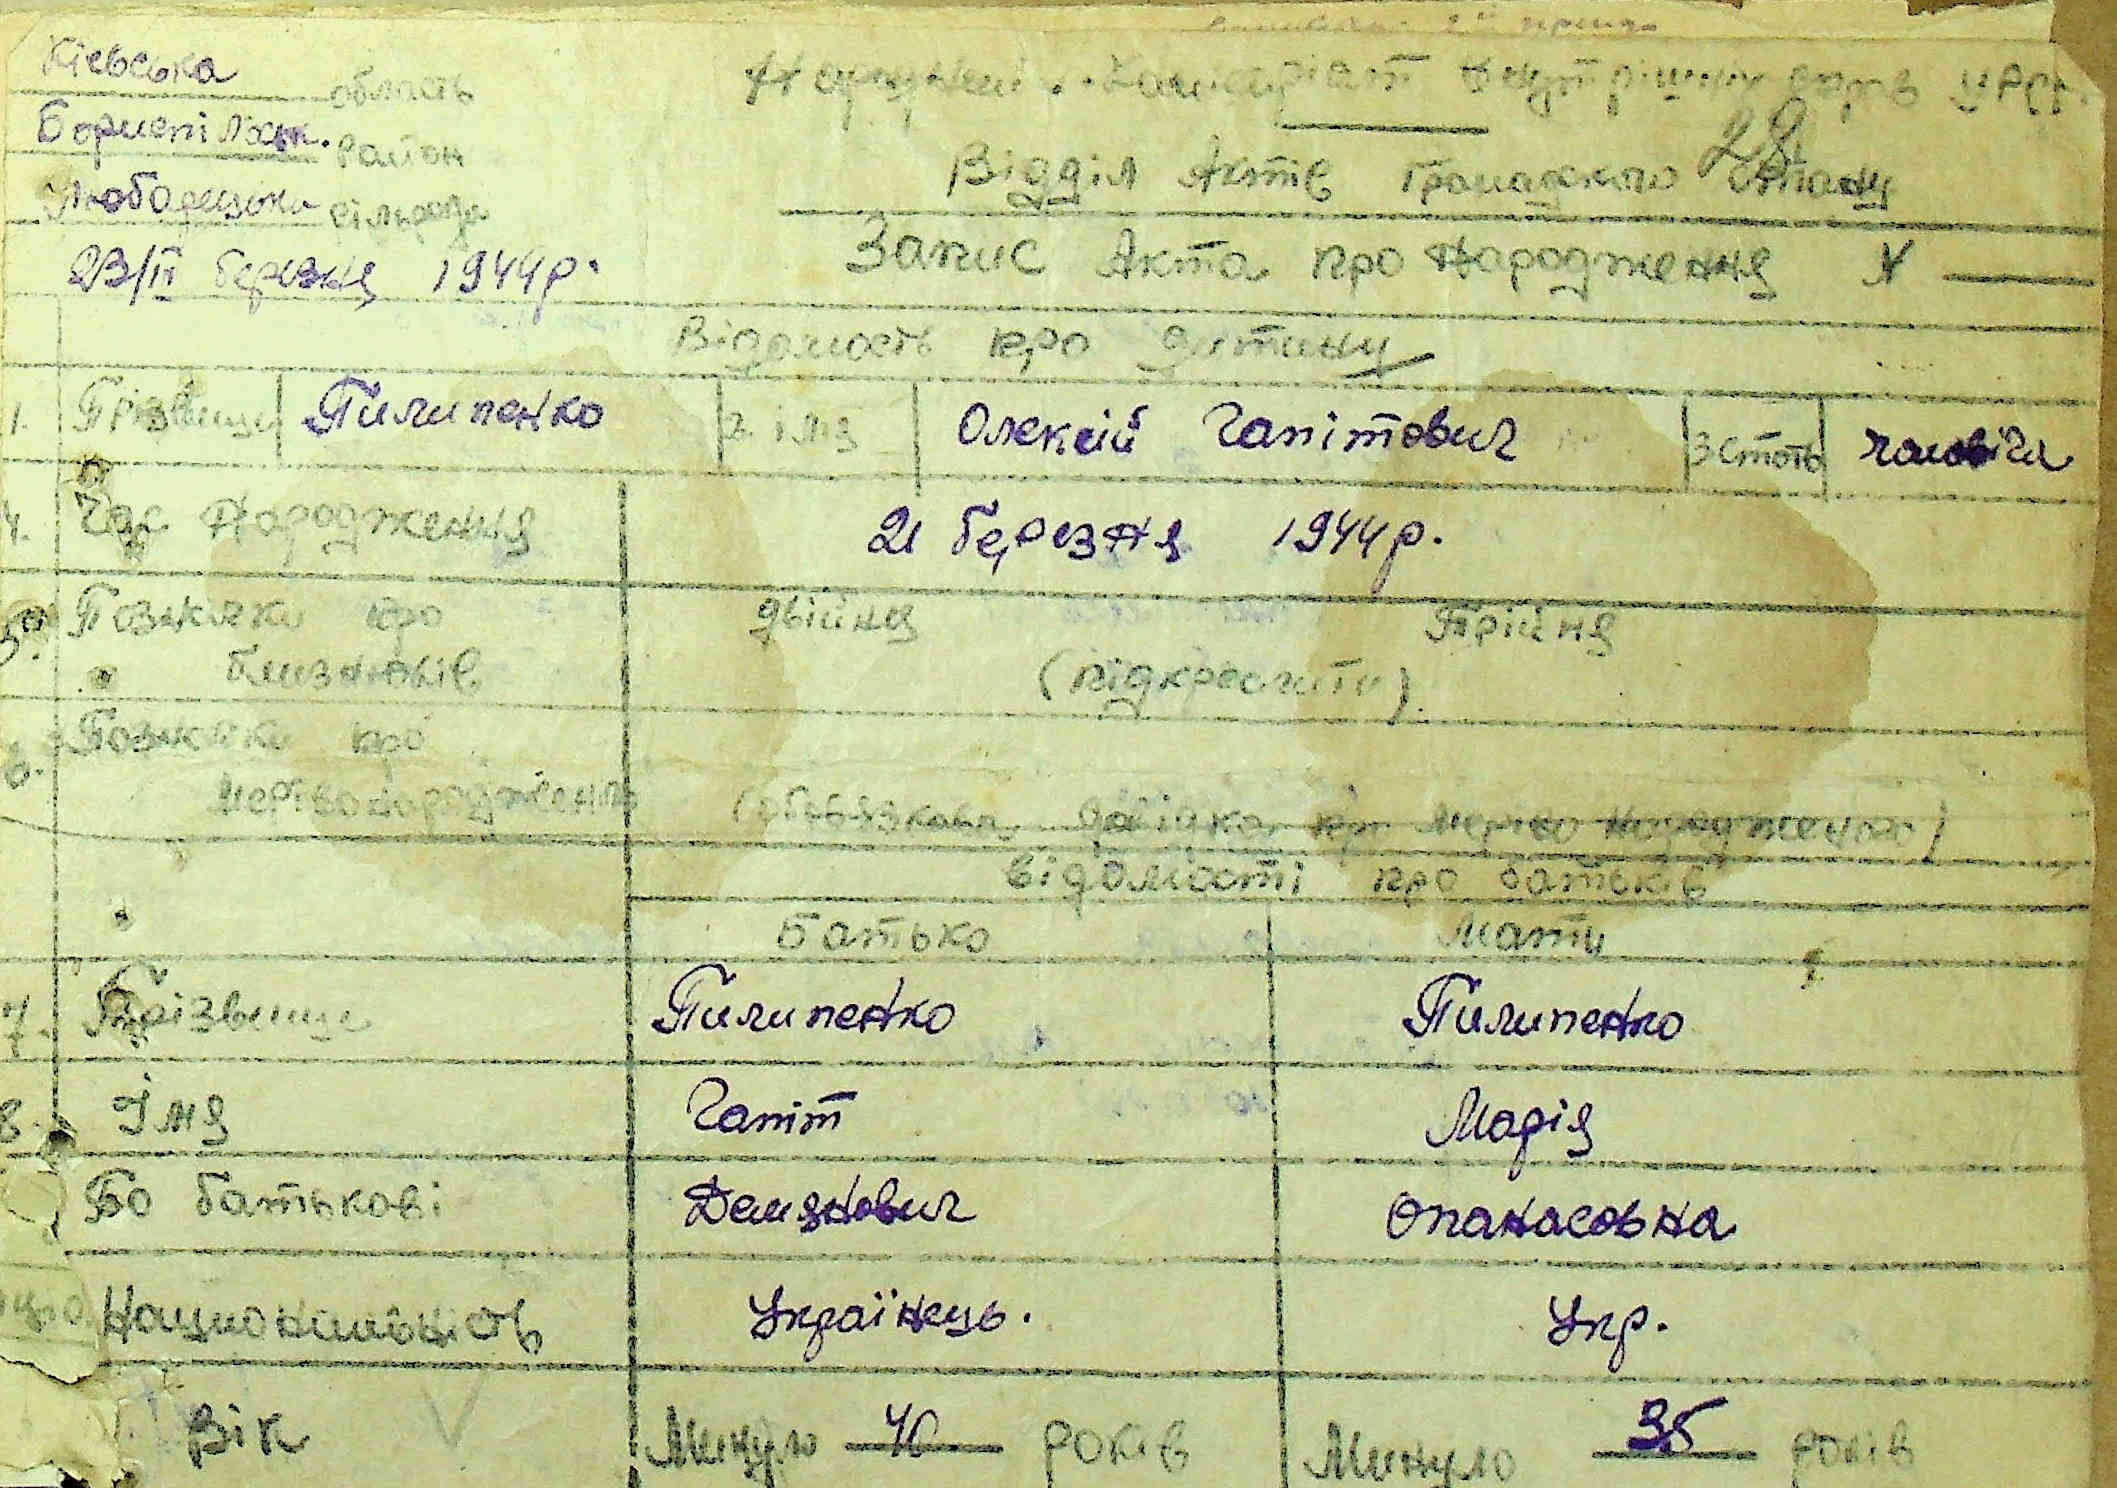 Кієвська область
Бориспільськ. район
Любарецька сільрада
23/ІІІ березня 1944 р.
Народний Комісаріат Внутрішніх справ УРСР
28
Відділ Актів Громадського Стану
Запис Акта про Народження №
Відомость про дитину
1. Прізвище Пилипенко 2. імя Олексій Гапітович 3 стать чоловіча
4. Час Народження 21 березня 1944 р.
5. Позначки про близнюків двійня Трійня
(підкреслити)
6. Позначки про мертвонародження
(обовязкова довідка про мертво народження)
відомості про батьків
Батько Мати
7. Прізвище Пилипенко Пилипенко
8. Імя Гапіт Марія
По батькові Демянович Опанасовна
Национальність Українець. Укр.
Вік Минуло 40 років Минуло 35 років